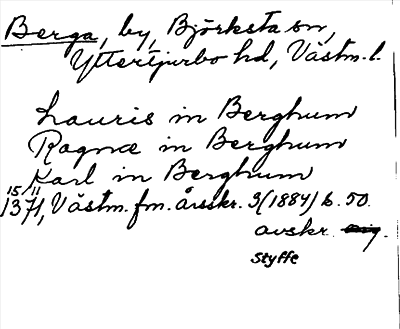 Berga, by, Björksta sn,
Yttertjurbo hd, Västm. l.
Lauris in Berghum
Ragnæ in Berghum
Karl in Berghum
15/11
1371, Västm. fm. årsskr. 3 (1884) b. 50.
avskr. orig.
Styffe